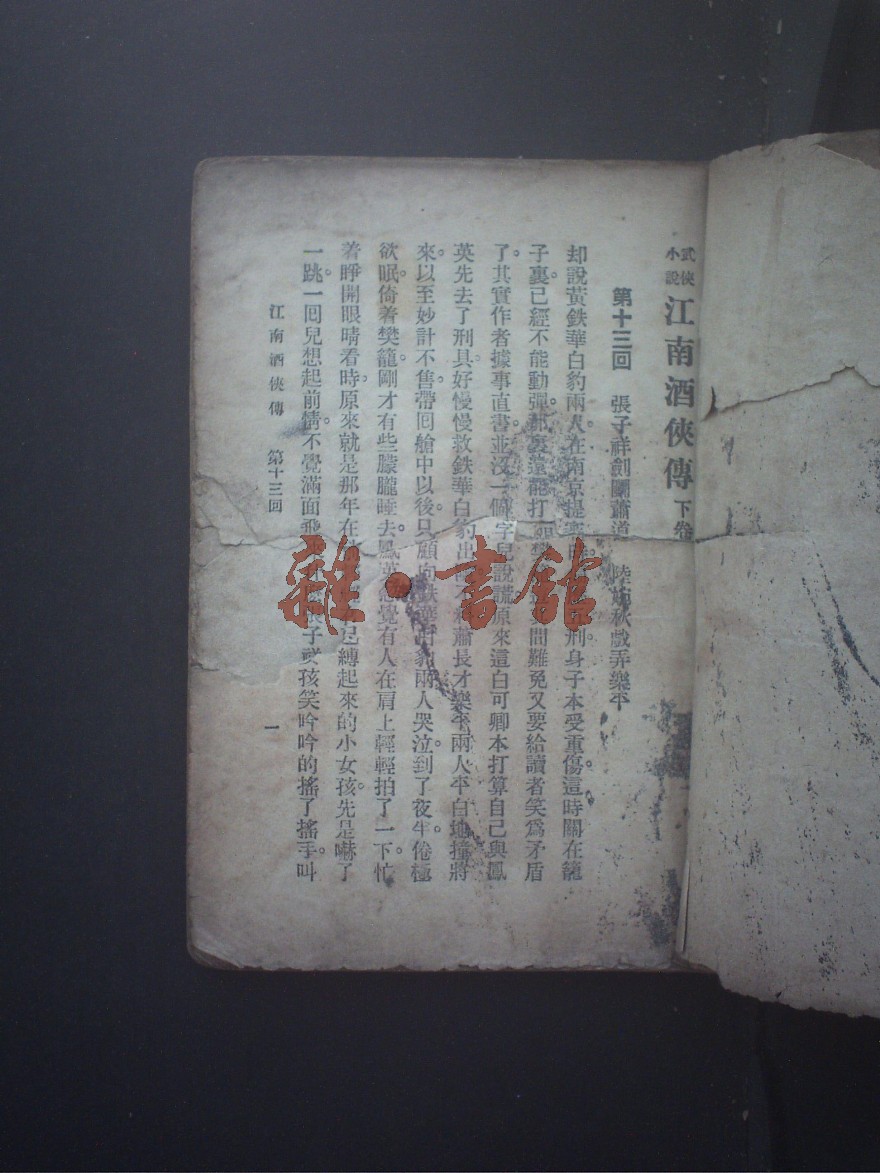 武俠小說 江南酒俠傳 下卷
第十三回 張子祥劍鬭蕭道 陸 秋戲弄樂平
却說黃鉄華白豹兩人。在南京提 刑。身子本受重傷。這時關在籠
子裏。已經不能動彈。那裏還能打 間難免又要給讀者笑爲矛盾
了。其實作者據事直書。並沒一個字兒說謊。原來這白可卿本打算自己與鳳
英先去了刑具。好慢慢救鉄華白豹出 蕭長才樂平兩人平白地撞將
來。以至妙計不售。帶回艙中以後。只顧向鉄華白豹兩人哭泣。到了夜半。倦極
欲眠。倚着樊籠。剛才有些朦朧睡去。鳳英忽覺有人在肩上輕輕拍了一下。忙
着睜開眼睛看時。原來就是那年在 己縛起來的小女孩。先是嚇了
一跳。一回兒想起前情。不覺滿面飛 孩笑吟吟的搖了搖手。叫
江南酒俠傳 第十三回
一
雜·書館